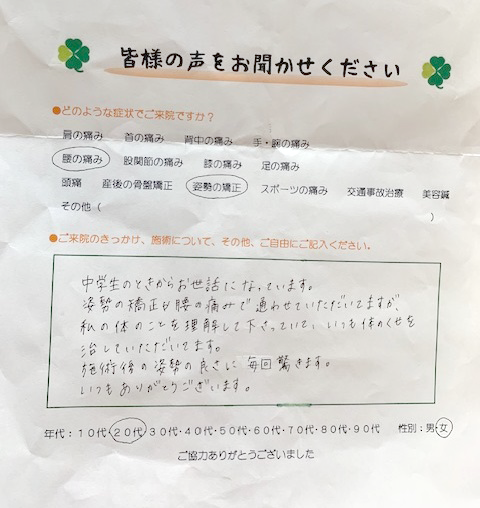 皆様の声をお聞かせください
●どのような症状でご来院ですか？
肩の痛み 首の痛み 背中の痛み 手・腕の痛み
腰の痛み 股関節の痛み 膝の痛み 足の痛み
頭痛 産後の骨盤矯正 姿勢の矯正 スポーツの痛み 交通事故治療 美容鍼
その他（ ）
●ご来院のきっかけ、施術について、その他、ご自由にご記入ください。
中学生のときからお世話になっています。
姿勢の矯正や腰の痛みで通わせていただいてますが、
私の体のことを理解して下さっていて、いつも体のくせを
治していただいてます。
施術後の姿勢の良さに毎回驚きます。
いつもありがとうございます。
年代：１０代・２０代・３０代・４０代・５０代・６０代・７０代・８０代・９０代 性別：男・女
ご協力ありがとうございました